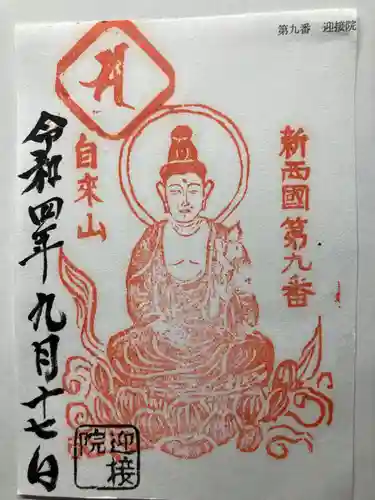 第九番 迎接院
新西國第九番
自來山
令和四年九月十七日
迎接院